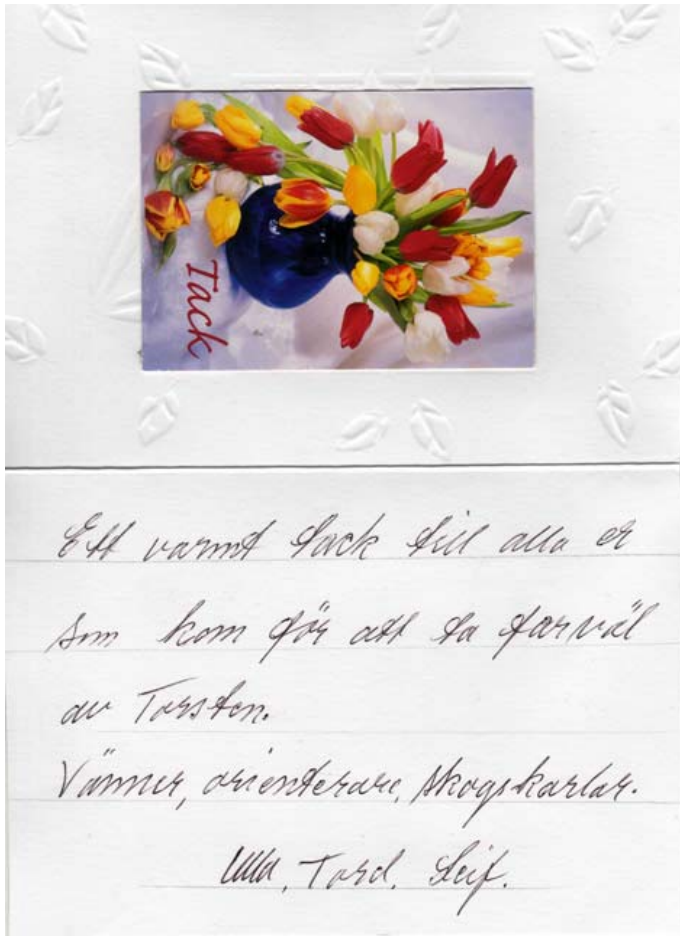 Tack
Ett varmt tack till alla er
som kom för att ta farväl
av Torsten.
Vänner, orienterare, skogskarlar.
Ulla, Tord. Leif.